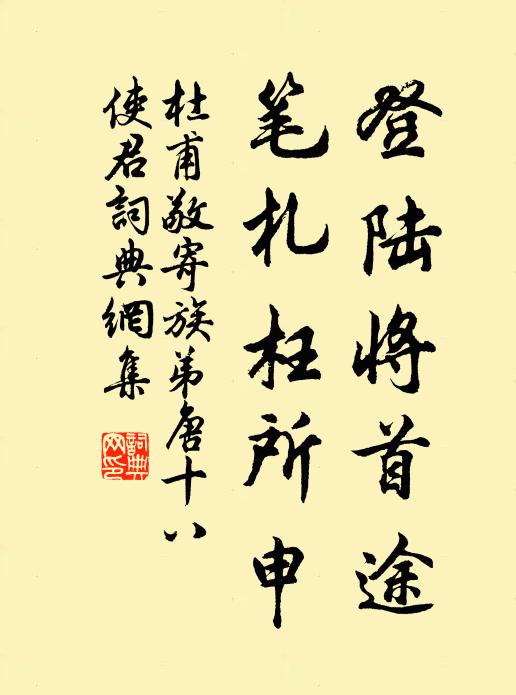 登陆将首途
笔札枉所申
杜甫敬寄族弟唐十八
使君詞典網集
詞典网印